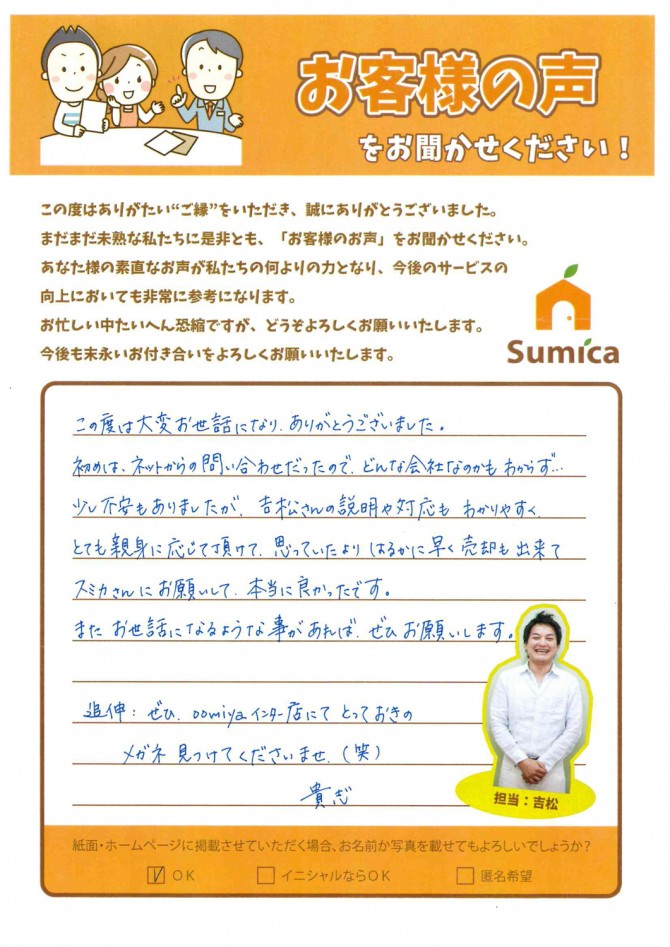 お客様の声
をお聞かせください！
この度はありがたい“ご縁”をいただき、誠にありがとうございました。
まだまだ未熟な私たちに是非とも、「お客様のお声」をお聞かせください。
あなた様の素直なお声が私たちの何よりの力となり、今後のサービスの
向上においても非常に参考になります。
お忙しい中たいへん恐縮ですが、どうぞよろしくお願いいたします。
今後も末永いお付き合いをよろしくお願いいたします。
Sumica
この度は大変お世話になり、ありがとうございました。
初めは、ネットからの問い合わせだったので、どんな会社なのかもわからず…
少し不安もありましたが、吉松さんの説明や対応もわかりやすく、
とても親身に応じて頂けて、思っていたよりはるかに早く売却も出来て
スミカさんにお願いして、本当に良かったです。
またお世話になるような事があれば、ぜひお願いします。
追伸：ぜひ、oomiyaインター店にてとっておきの
メガネ見つけてくださいませ。(笑)
貴志
担当：吉松
紙面・ホームページに掲載させていただく場合、お名前か写真を載せてもよろしいでしょうか？
OK イニシャルならOK 匿名希望